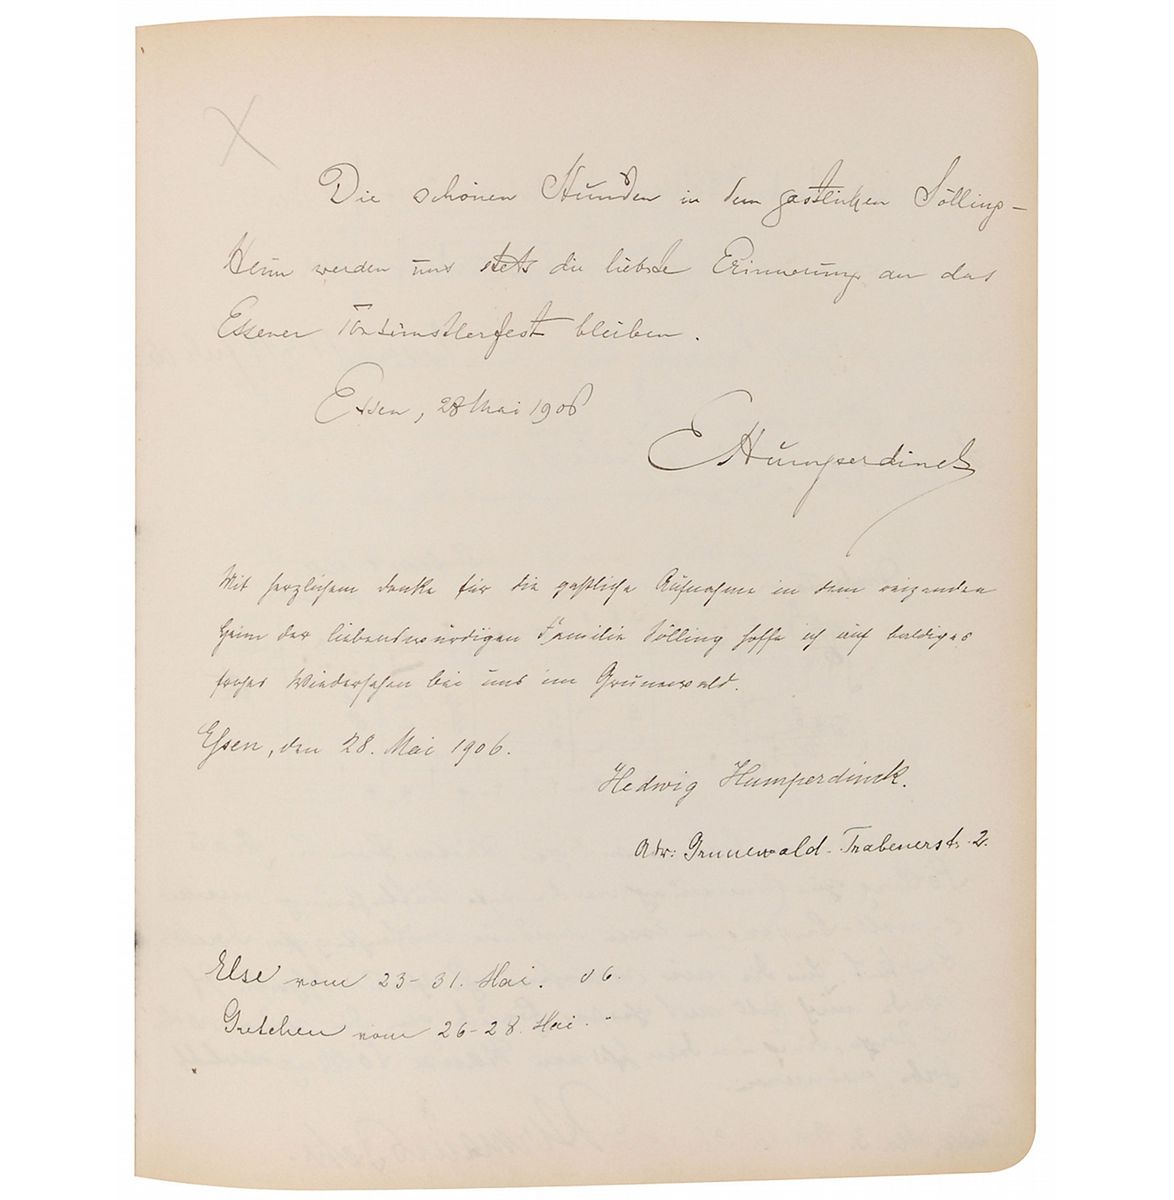 Die schönen Stunden in dem gastlichen Sölling-
Heim werden uns stets die liebste Erinnerung an das
Essener Tonkünstlerfest bleiben.
Essen, 28 Mai 1906
EHumperdinck
Mit herzlichem Danke für die gastliche Aufnahme in dem reizenden
Heim der liebenswürdigen Familie Sölling hoffe ich auf baldiges
frohes Wiedersehen bei uns im Grunewald.
Essen, den 28. Mai 1906.
Hedwig Humperdinck.
Adr: Grunewald-Trabenerst. 2.
Else vom 23-31. Mai. 06.
Gretchen vom 26-28. Mai. "